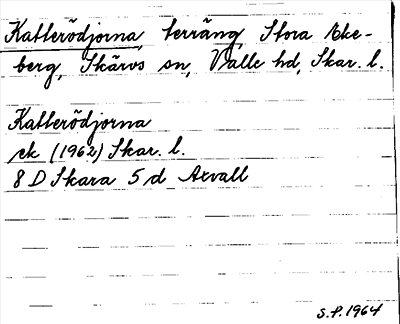 Katterödjorna, terräng, Stora Eke-
berg, Skärvs sn, Valle hd, Skar. l.
Katterödjorna
ek (1962) Skar. l.
8 D Skara 5 d Axvall
S.P. 1964